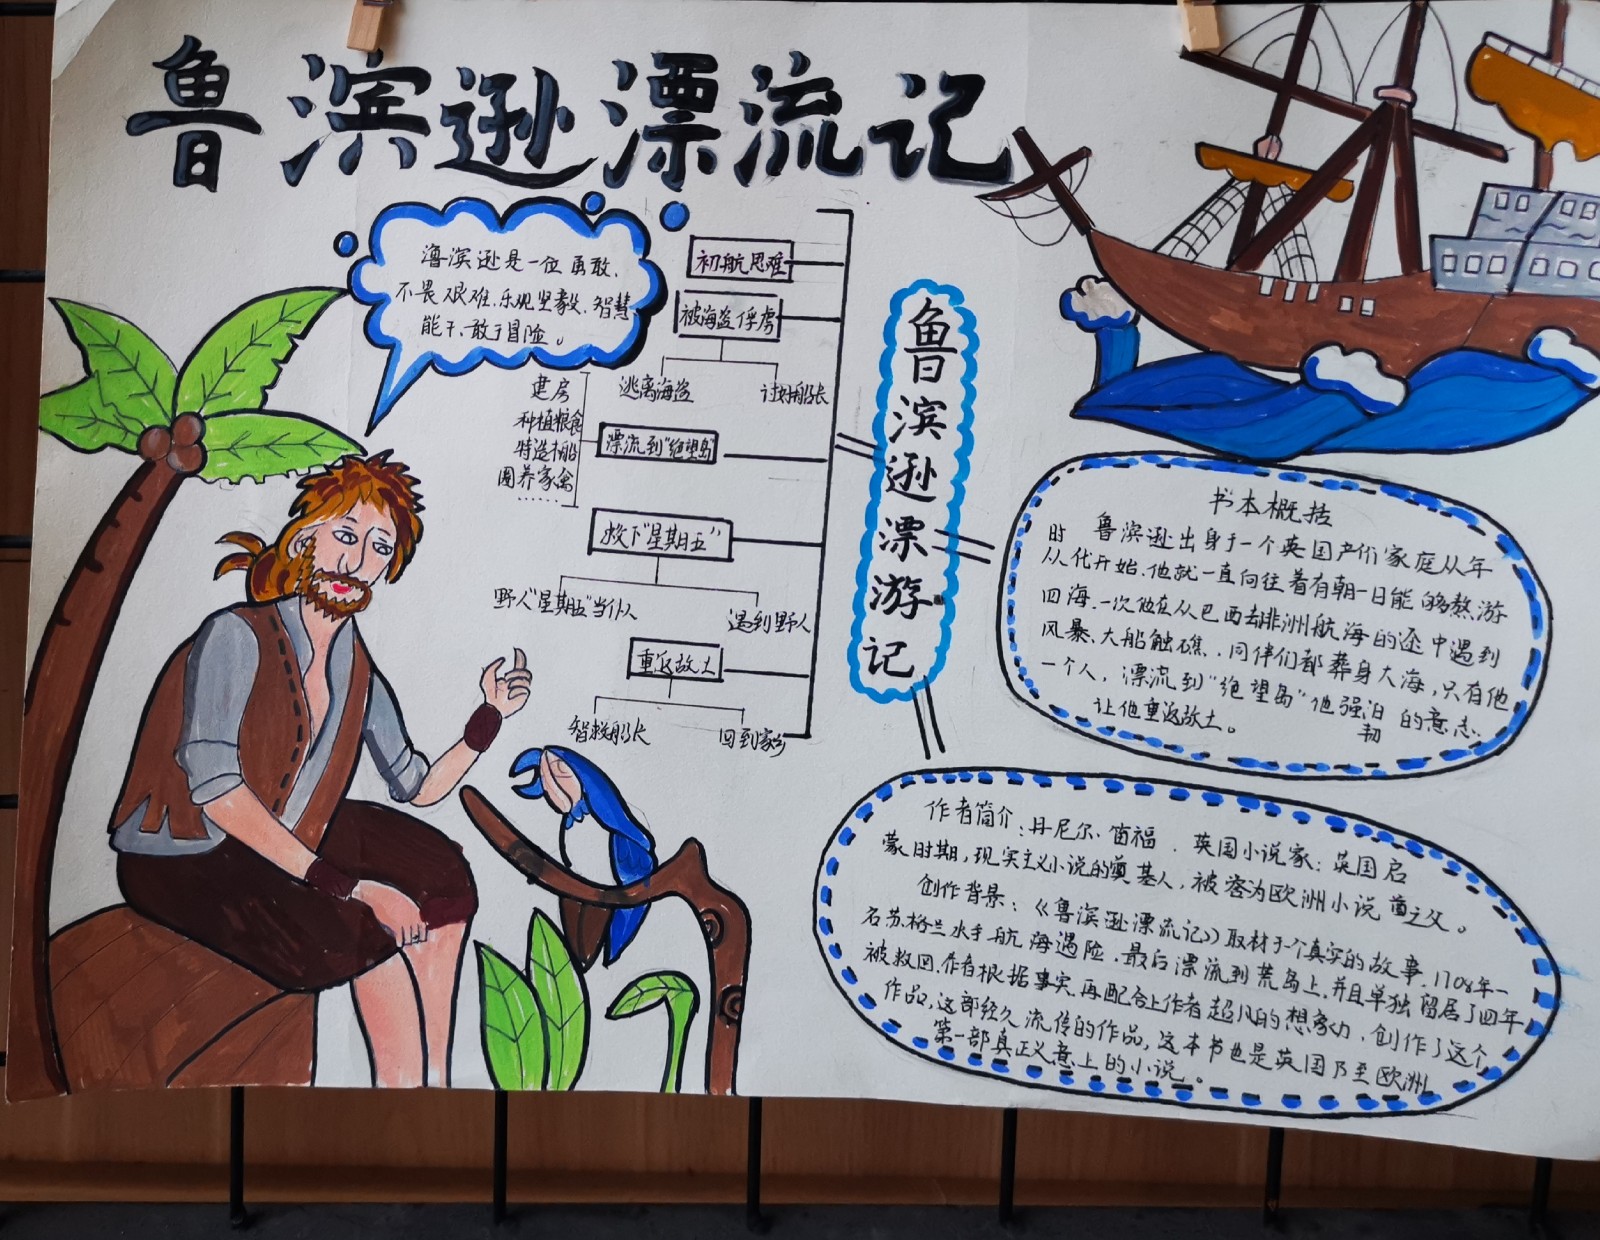 鲁滨逊漂流记
鲁滨逊是一位勇敢、
不畏艰难、乐观坚毅、智慧、
能干、敢于冒险。
初航思难
被海盗俘虏
逃离海盗
讨好船长
建房
种植粮食
特造木船
圈养家禽
……
漂流到"绝望岛"
救下"星期五"
野人"星期五"当仆人
遇到野人
重返故土
智救船长
回到家乡
鲁滨逊漂游记
书本概括
鲁滨逊出身于一个英国产价家庭从年
时从代开始、他就一直向往着有朝一日能够熬游
四海、一次他在从巴西去非洲航海的途中遇到
风暴、大船触礁、同伴们都葬身大海,只有他
一个人,漂流到"绝望岛"他强韧的意志
让他重返故土。
作者简介:丹尼尔·笛福、英国小说家:英国启
蒙时期,现实主义小说的奠基人,被誉为欧洲小说之父。
创作背景:《鲁滨逊漂流记》取材于一个真实的故事、1708年一
名苏格兰水手航海遇险,最后漂流到荒岛上、并且单独留居了四年
被救回、作者根据事实、再配合上作者超凡的想象力,创作了这个
作品,这部经久流传的作品,这本书也是英国乃至欧洲
第一部真正义意上的小说。